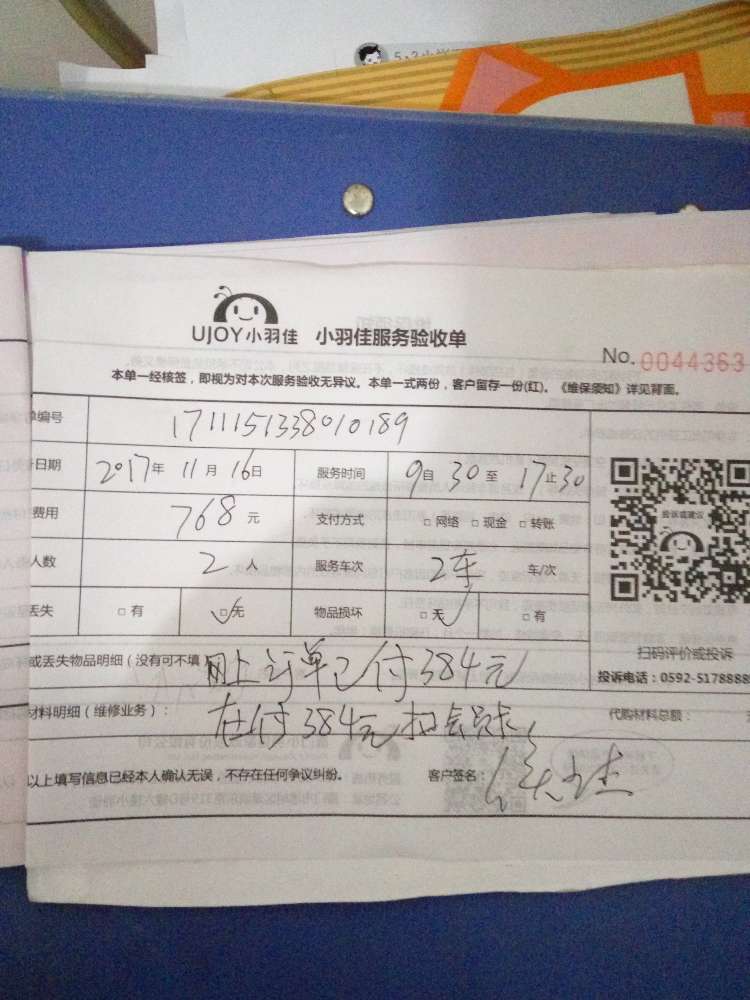 UJOY小羽佳 小羽佳服务验收单
No. 0044363
本单一经核签，即视为对本次服务验收无异议。本单一式两份，客户留存一份(红)。《维保须知》详见背面。
编号 1711151338010189
日期 2017年 11月 16日 服务时间 9自 30至 17止30
费用 768元 支付方式 □网络 □现金 □转账
人数 2人 服务车次 2车 车/次
丢失 □有 □无 物品损坏 □无 □有
投诉或建议
扫码评价或投诉
投诉电话：0592-5178888
或丢失物品明细（没有可不填） 网上订单已付384元
材料明细（维修业务）： 在付384元扣会员卡 代购材料总额：
以上填写信息已经本人确认无误，不存在任何争议纠纷。 客户签名：